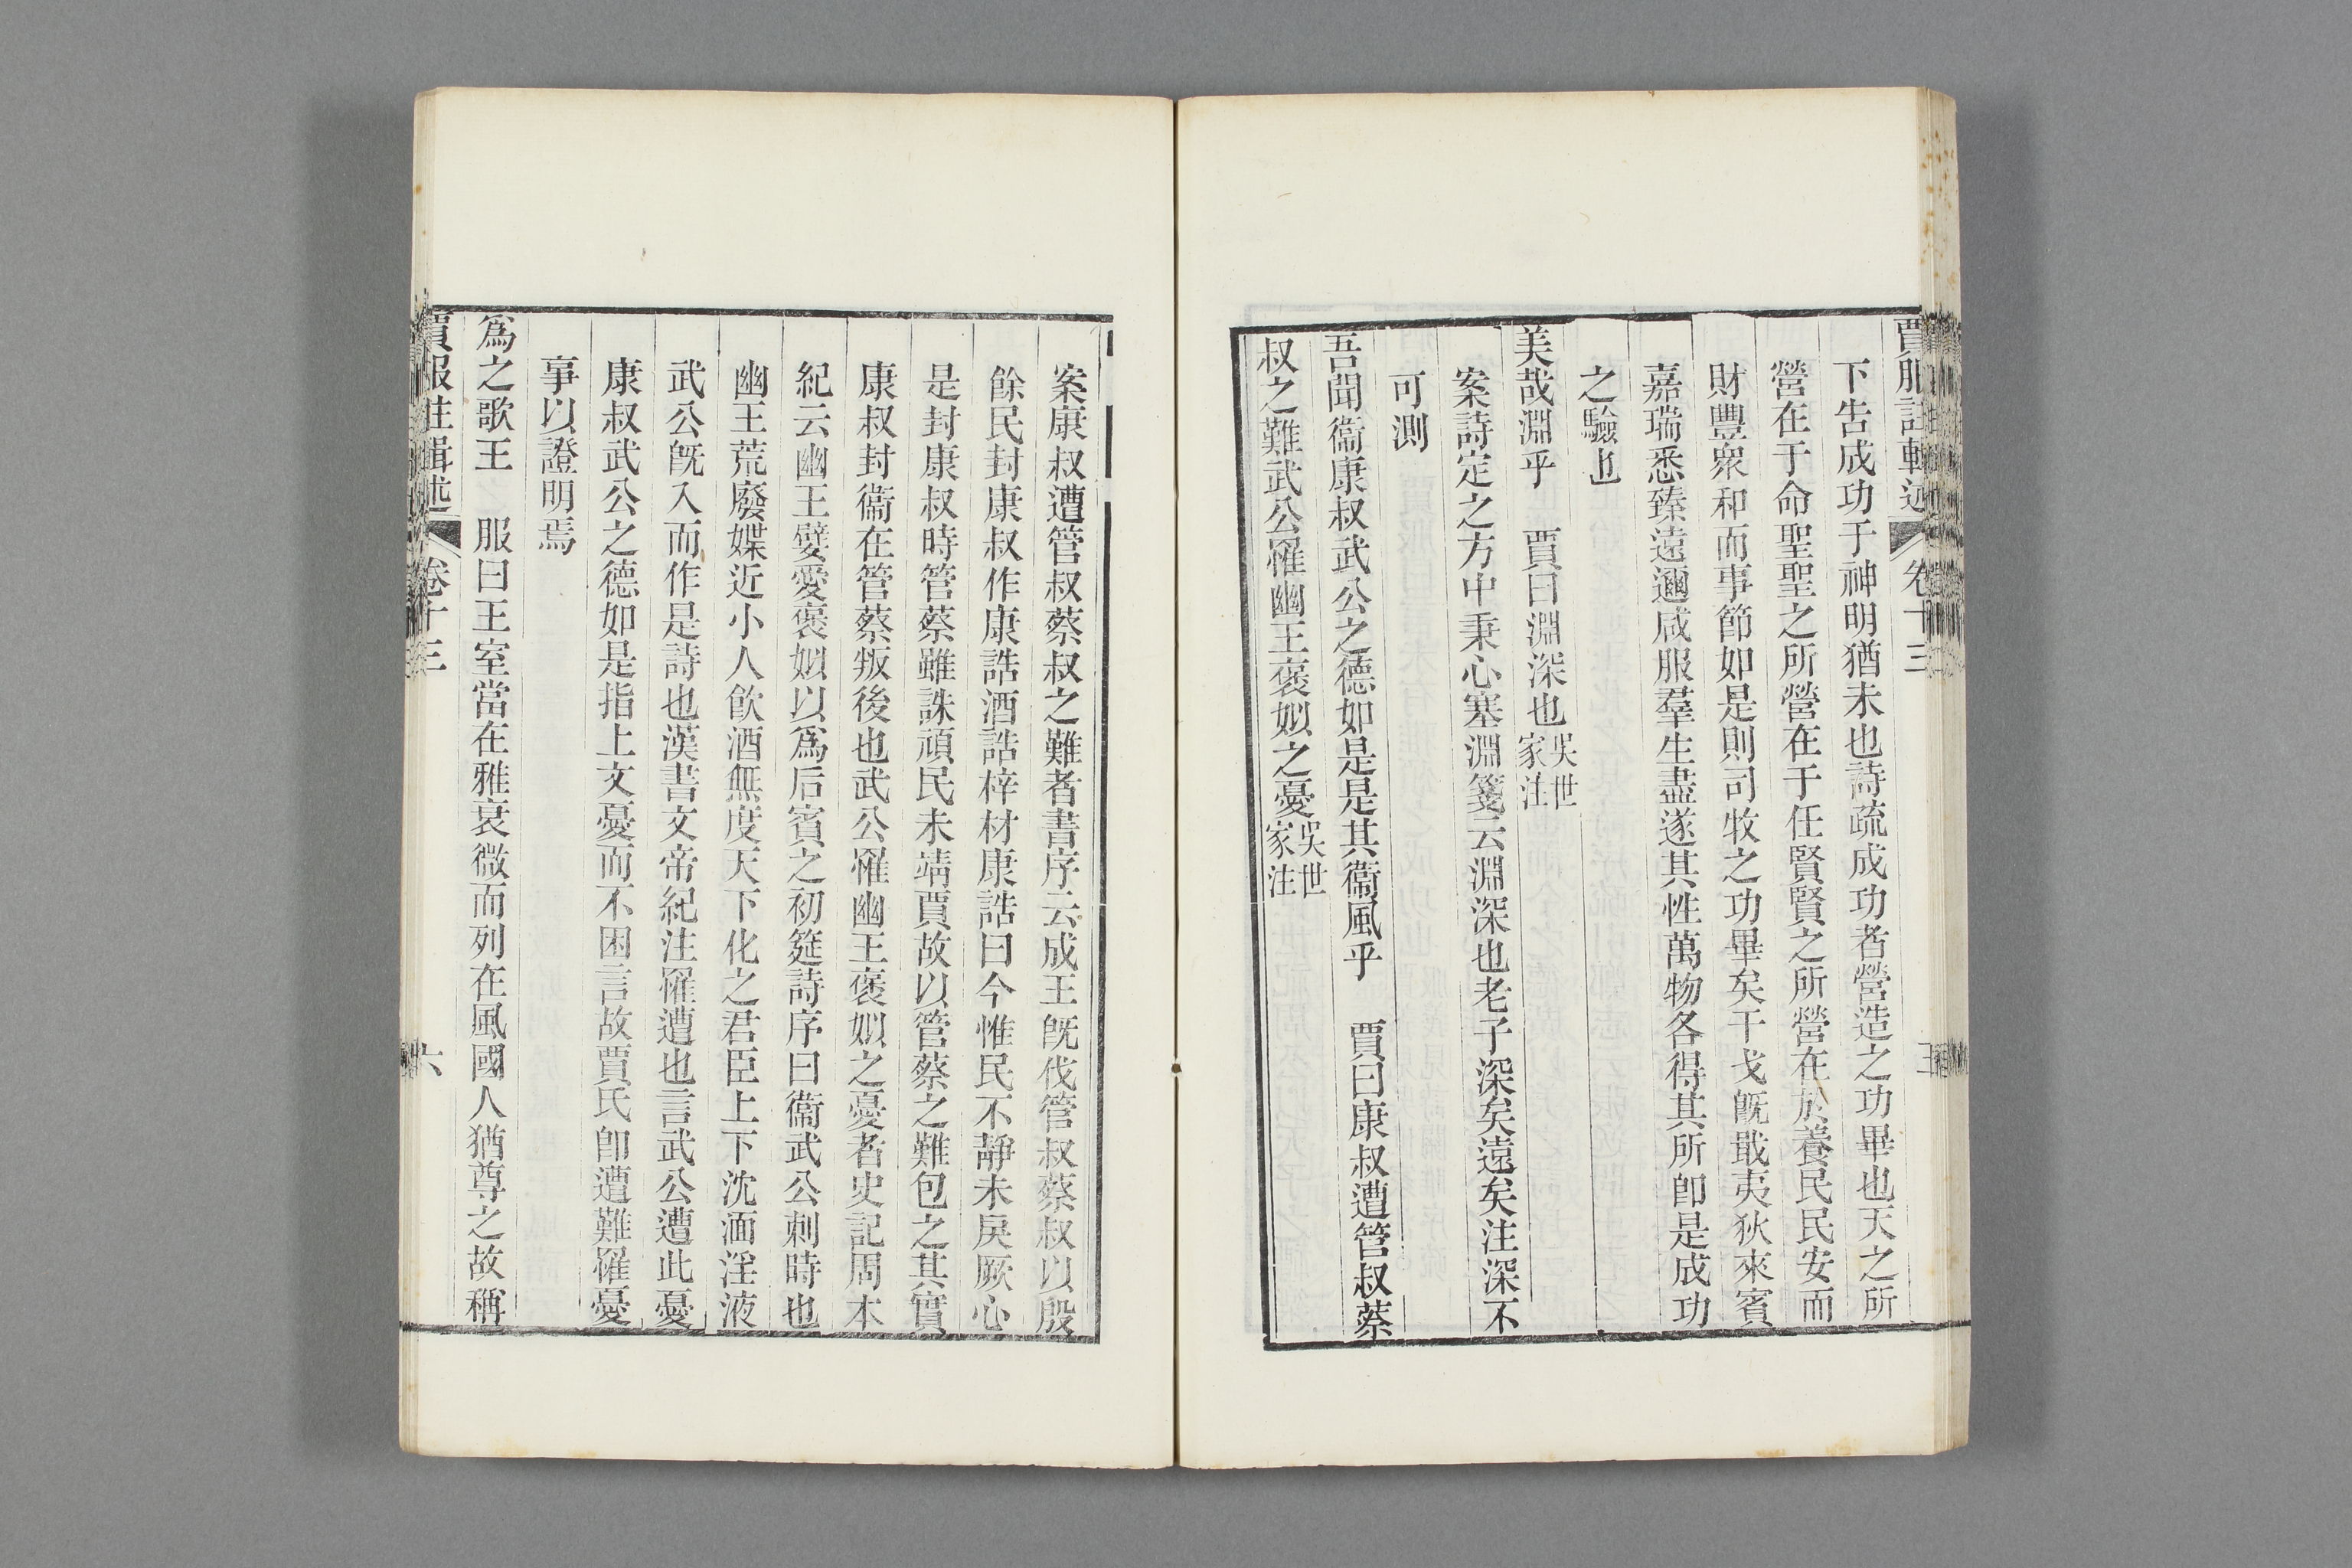 賈服注輯述 卷十三
下告成功于神明猶未也詩疏成功者營造之功畢也天之所
營在于命聖聖之所營在于任賢賢之所營在於養民民安而
財豐衆和而事節如是則司牧之功畢矣干戈旣戢夷狄來賓
嘉瑞悉臻遠邇咸服羣生盡遂其性萬物各得其所卽是成功
之驗也
美哉淵乎 賈曰淵深也吳世家注
案詩定之方中秉心塞淵箋云淵深也老子深矣遠矣注深不
可測
吾聞衞康叔武公之德如是是其衞風乎 賈曰康叔遭管叔蔡
叔之難武公罹幽王褒姒之憂吳世家注
案康叔遭管叔蔡叔之難者書序云成王旣伐管叔蔡叔以殷
餘民封康叔作康誥酒誥梓材康誥曰今惟民不靜未戾厥心
是封康叔時管蔡雖誅頑民未靖賈故以管蔡之難包之其實
康叔封衞在管蔡叛後也武公罹幽王褒姒之憂者史記周本
紀云幽王嬖愛褒姒以爲后賓之初筵詩序曰衞武公刺時也
幽王荒廢媟近小人飮酒無度天下化之君臣上下沈湎淫液
武公旣入而作是詩也漢書文帝紀注罹遭也言武公遭此憂
康叔武公之德如是指上文憂而不困言故賈氏卽遭難罹憂
事以證明焉
爲之歌王 服曰王室當在雅衰微而列在風國人猶尊之故稱
賈服注輯述 卷十三 六